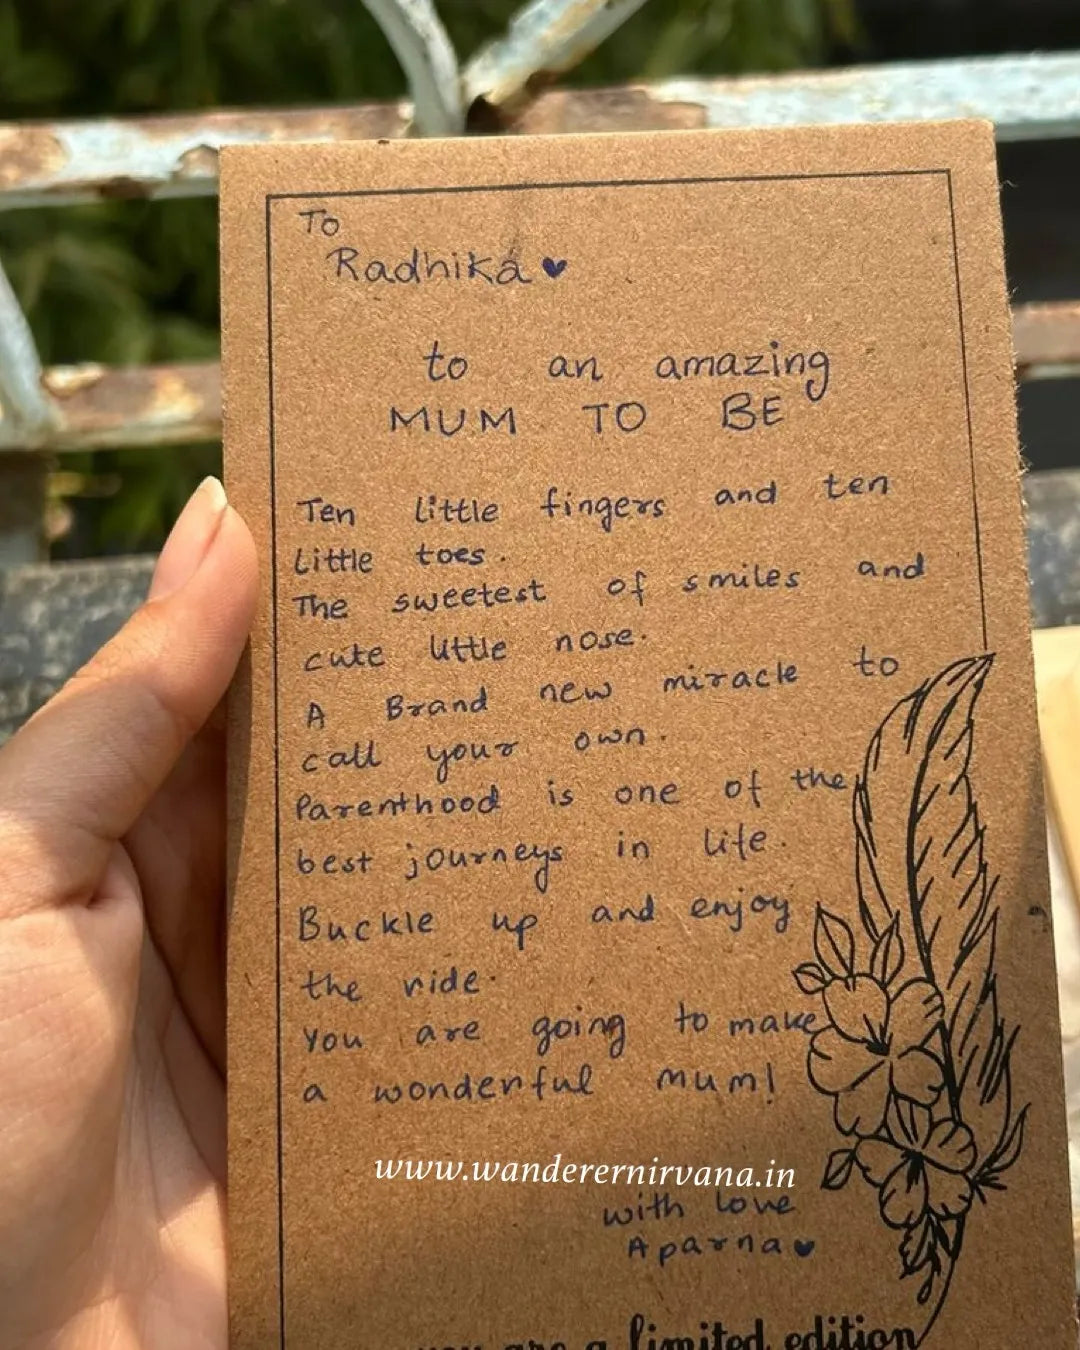 To
Radhika
to an amazing
MUM TO BE
Ten little fingers and ten
little toes.
The sweetest of smiles and
cute little nose.
A Brand new miracle to
call your own.
Parenthood is one of the
best journeys in life.
Buckle up and enjoy
the ride.
You are going to make
a wonderful mum!
www.wanderernirvana.in
with love
Aparna
you are a limited edition